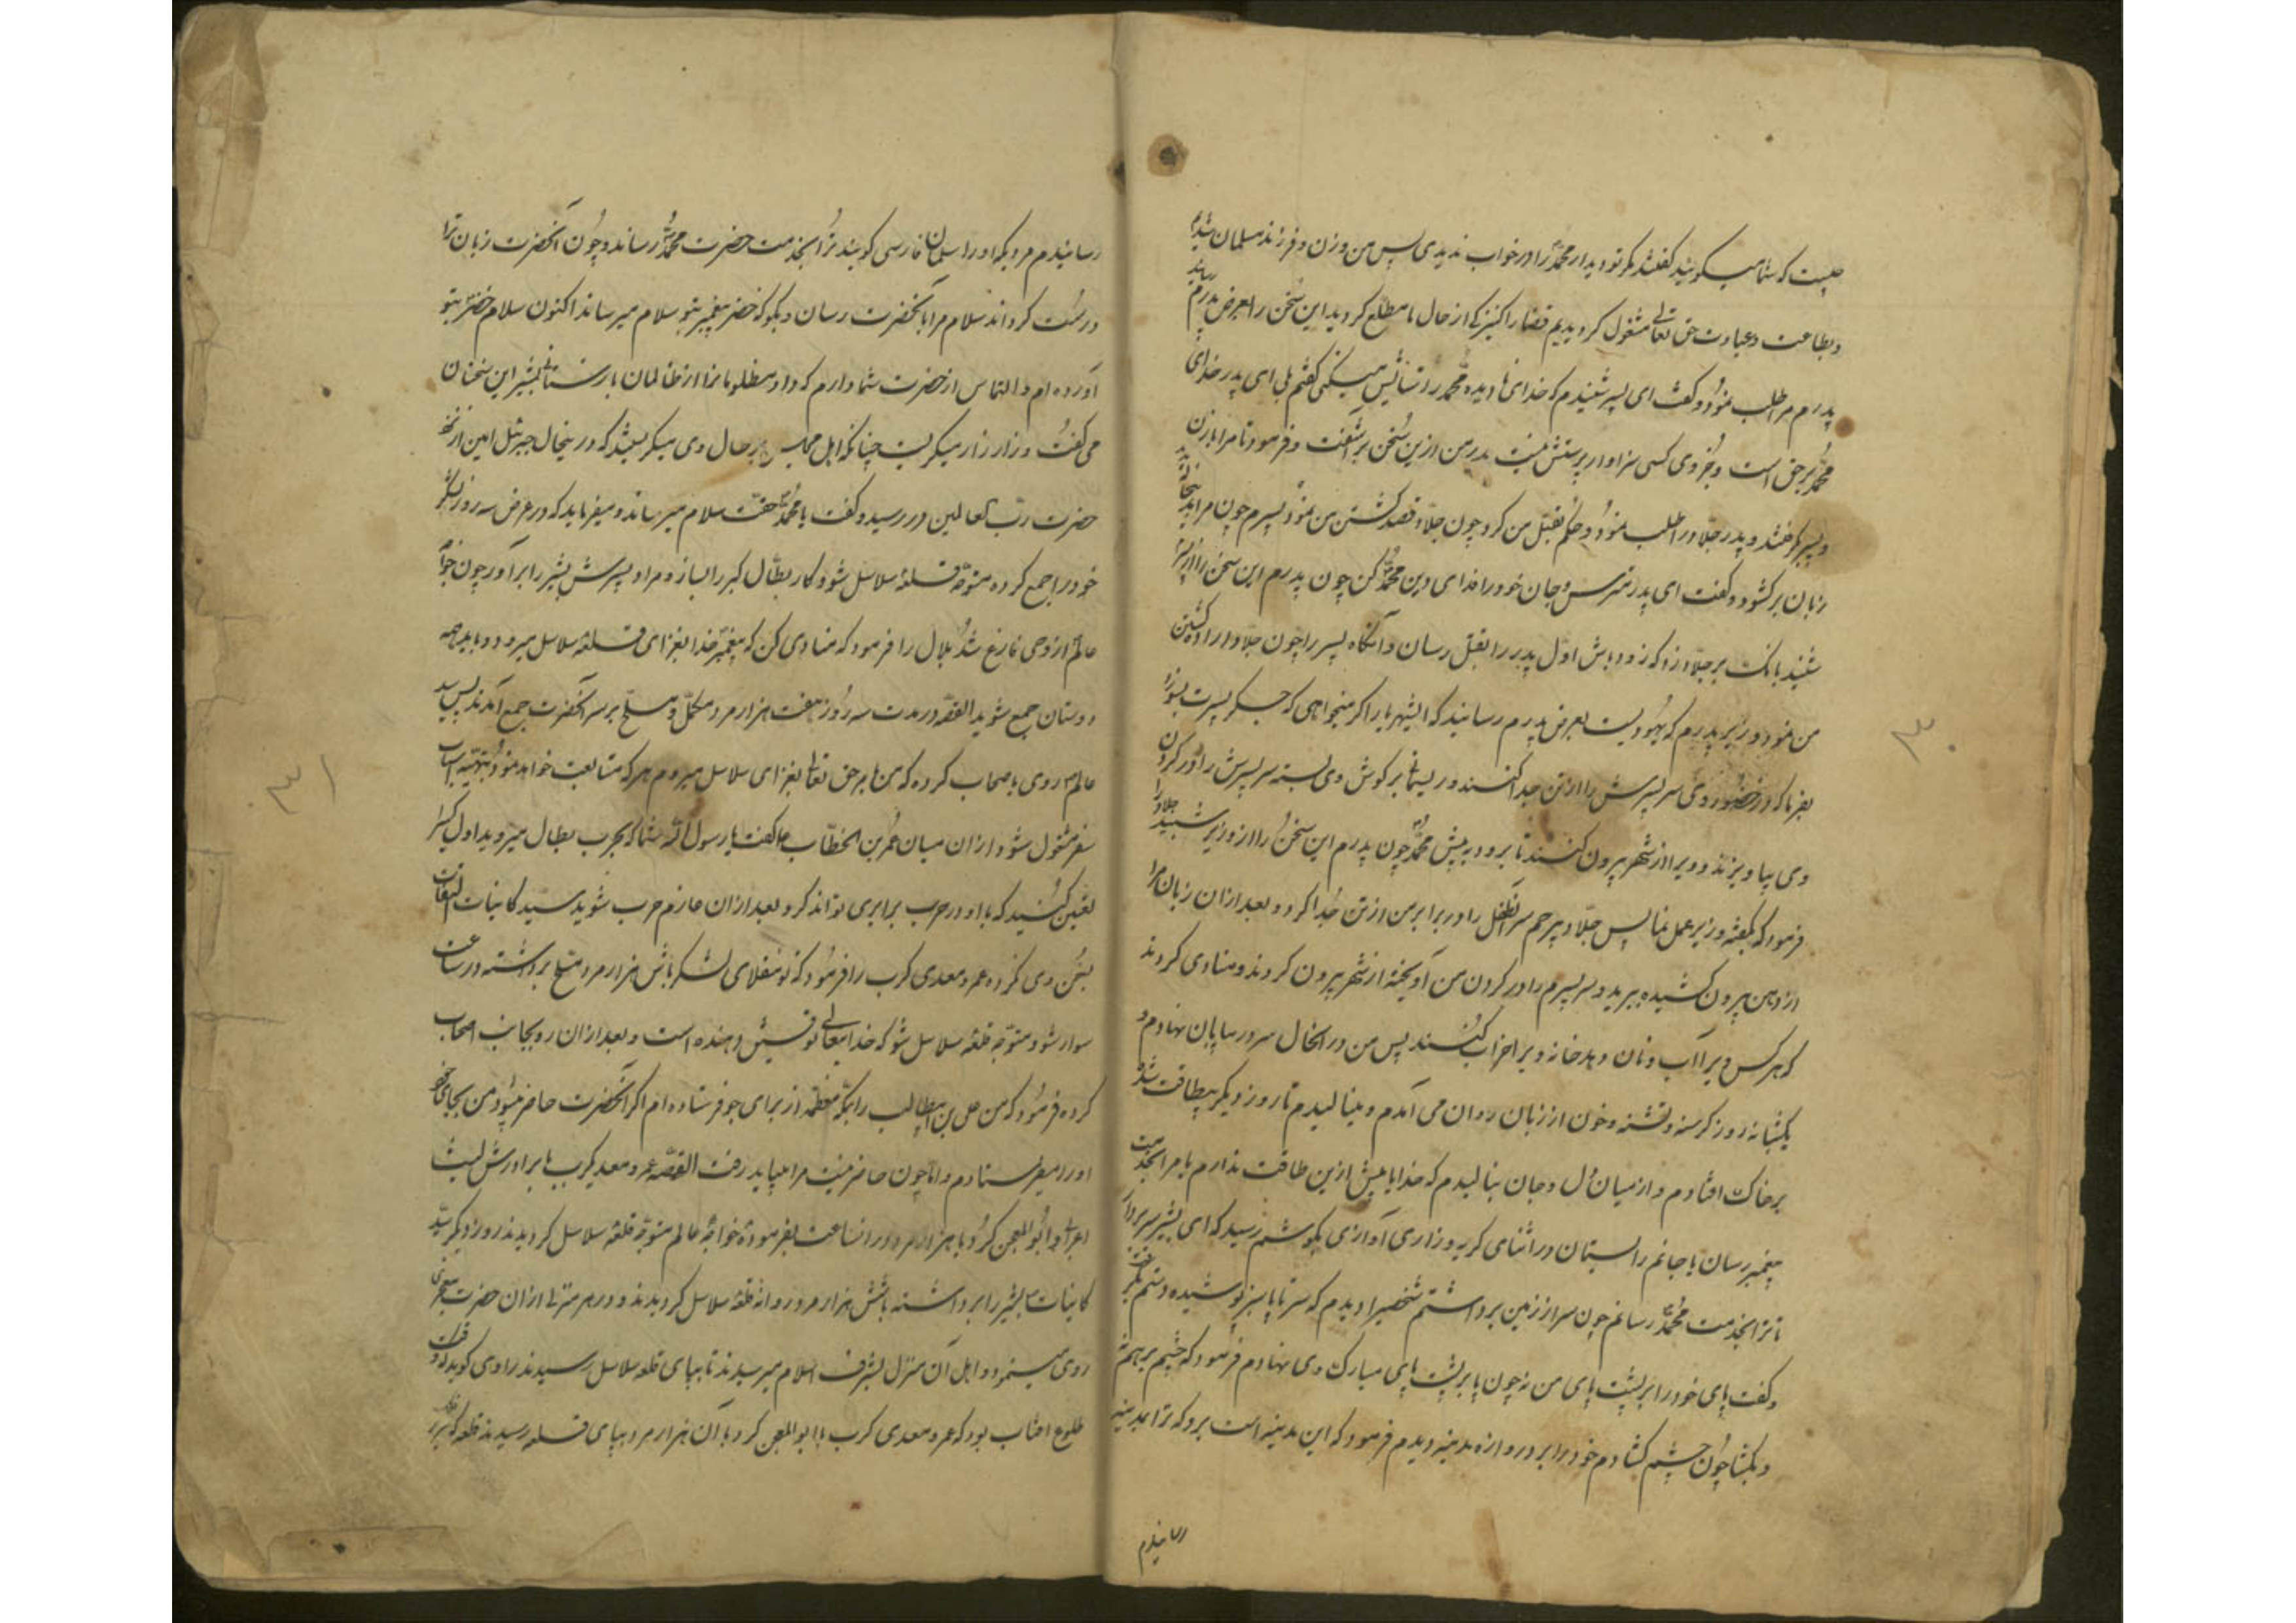 چیست که شما میگوئید گفتند مگر تو دیدار محمد را در خواب ندیدی پس من و زن و فرزند مسلمان شدیم
و بطاعت و عبادت حق تعالی مشغول گردیدیم قضا را کنیزکی از حال ما مطلع گردید این سخن را بعرض پدرم رسانید
پدرم مرا طلب نمود و گفت ای پسر شنیدم که خدای نادیده محمد را ستایش میکنی گفتم بلی ای پدر خدای
محمد بر حق است و جز وی کسی سزاوار پرستش نیست پدر من ازین سخن برآشفت و فرمود تا مرا با زن
و پسر گرفتند و پدر جلاد را طلب نمود و حکم بقتل من کرد چون جلاد قصد کشتن من نمود پسرم چون مرا
زبان برگشود و گفت ای پدر مترس و جان خود را فدای دین محمد کن چون پدرم این سخن را از پسر
شنید بانگ بر جلاد زد که زود باش اول پدر را بقتل رسان و آنگاه پسر را چون جلاد اراده کشتن
من نمود وزیر پدرم که یهودیست بعرض پدرم رسانید که ایشهریار اگر میخواهی که جگر پسرت بسوزد
بفرما که در حضور وی سر پسرش را از تن جدا کنند و ریسمانی بر گوش وی بسته سر پسرش را در گردن
وی بیاویزند و ویرا از شهر بیرون کنند تا برود به پیش محمد چون پدرم این سخن را از وزیر شنید جلاد را
فرمود که بگفته وزیر عمل نما پس جلاد بیرحم سر آن طفل را در برابر من از تن جدا کرد و بعد از آن زبان مرا
از دهن بیرون کشیده ببرید و سر پسرم را در گردن من آویخته از شهر بیرون کردند و منادی کردند
که هر کس ویرا آب و نان دهد خانه ویرا خراب کنند پس من در آنحال سر در بیابان نهادم و
یکشبانه روز گرسنه و تشنه و خون از زبان روان می آمدم و مینالیدم تا روز دیگر بیطاقت شده
بر خاک افتادم و از میان دل و جان بنالیدم که خدایا بیش ازین طاقت ندارم یا مرا بخدمت
پیغمبر رسان یا جانم را بستان در اثنای گریه و زاری آوازی بگوشم رسید که ای بشیر سر بردار
تا ترا بخدمت محمد رسانم چون سر از زمین برداشتم شخصی را دیدم که سر تا پا سبز پوشیده دستم بگرفت
و گفت پای خود را بر پشت پای من نه چون پا بر پشت پای مبارک وی نهادم فرمود که چشم بر هم نه
و بگشا چون چشم گشادم خود را بر دروازه مدینه دیدم فرمود که این مدینه است برو که ترا بمدینه
رسانیدم
۳۰
رسانیدم مردیکه او را سلمان فارسی گویند ترا بخدمت حضرت محمد رساند و چون آنحضرت زبان ترا
درست گرداند سلام مرا بآنحضرت رسان و بگو که خضر پیغمبر بتو سلام میرساند اکنون سلام خضر بتو
آورده ام و التماس از حضرت شما دارم که داد مظلومانرا از ظالمان بازستانی بشیر این سخنان
می گفت و زار زار میگریست چنانکه اهل مجلس بر حال وی میگریستند که درینحال جبرئیل امین از نزد
حضرت رب العالمین در رسید و گفت یا محمد حقت سلام میرساند و میفرماید که در عرض سه روز لشکر
خود را جمع کرده متوجه قلعه سلاسل شو و کار بطال گبر را بساز و مراد پسرش بشیر را برآور چون خواجه
عالم از وحی فارغ شد بلال را فرمود که منادی کن که پیغمبر خدا بغزای قلعه سلاسل میرود و باید همه
دوستان جمع شوید القصه در مدت سه روز هفت هزار مرد مکمل و مسلح بر سر آنحضرت جمع آمدند پس سید
عالم روی باصحاب کرده که من بامر حق تعالی بغزای سلاسل میروم هر که متابعت خواهد نمود بتهیه اسباب
سفر مشغول شود از آن میان عمر بن الخطاب گفت یا رسول الله شما که بحرب بطال میروید اول کسی را
تعین کنید که با او در حرب برابری تواند کرد و بعد از آن عازم حرب شوید سید کاینات التفات
بسخن وی نکرده عمرو معدی کرب را فرمود که تو منقلای لشکر باش هزار مرد مسلح برداشته در ساعت
سوار شو و متوجه قلعه سلاسل شو که خدایتعالی توفیق دهنده است و بعد از آن رو بجانب اصحاب
کرده فرمود که من علی بن ابیطالب را بمکه معظمه از برای جو فرستاده ام اگر آنحضرت حاضر میبود من بجای خود
او را میفرستادم و اما چون حاضر نیست مرا میباید رفت القصه عمرو معدیکرب با برادرش لیث
اعرابی و ابوالمعجن گرد با هزار مرد در انساعت بفرموده خواجه عالم متوجه قلعه سلاسل گردیدند روز دیگر سید
کاینات بشیر را برداشته با شش هزار مرد روانه قلعه سلاسل گردیدند و در هر منزلی از آن حضرت معجزه
روی مینمود و اهل آن منزل بشرف اسلام میرسیدند تا بپای قلعه سلاسل رسیدند راوی گوید که وقت
طلوع افتاب بود که عمرو معدی کرب با ابوالمعجن گرد با آن هزار مرد بپای قلعه رسیدند
۳۱